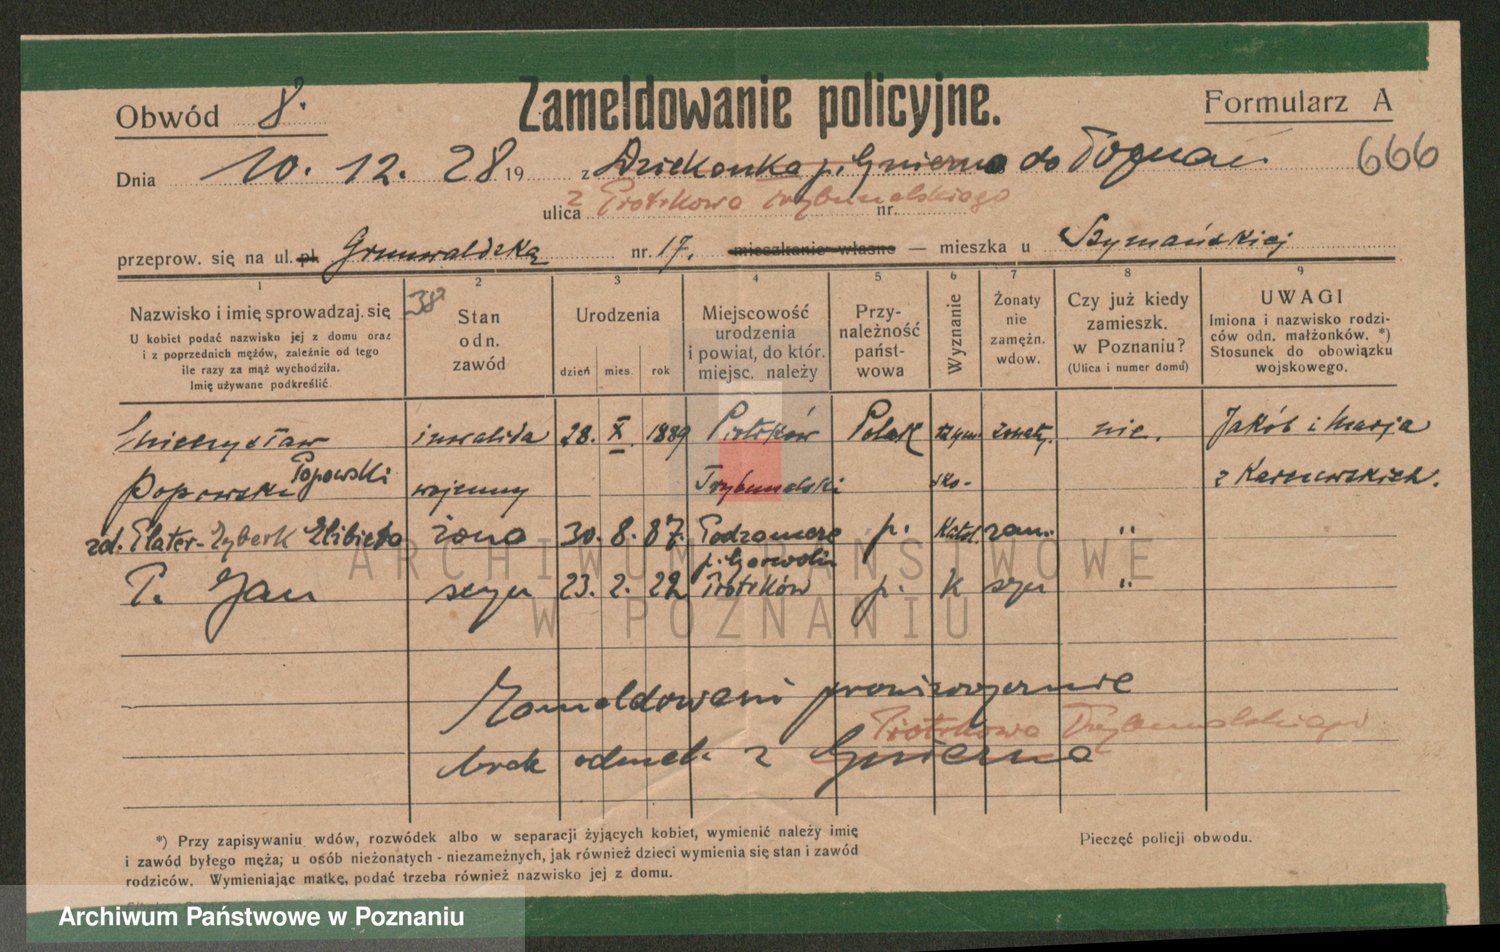 Zameldowanie policyjne.
Obwód 8.
Formularz A
666
Dnia 10. 12. 28 19 z Dziekanka p. Gniezno do Poznań.
ulica z Piotrkowa Trybunalskiego nr.
przeprow. się na ul. pl. Grunwaldzką nr. 17. mieszkanie własne — mieszka u Szymańskiej
1 2 3 4 5 6 7 8 9
38
Nazwisko i imię sprowadzaj. się
U kobiet podać nazwisko jej z domu oraz
i z poprzednich mężów, zależnie od tego
ile razy za mąż wychodziła.
Imię używane podkreślić.
Stan
odn.
zawód
Urodzenia
dzień mies. rok
Miejscowość
urodzenia
i powiat, do któr.
miejsc. należy
Przy-
należność
państ-
wowa
Wyznanie
Żonaty
nie
zamężn.
wdow.
Czy już kiedy
zamieszk.
w Poznaniu?
(Ulica i numer domu)
UWAGI
Imiona i nazwisko rodzi-
ców odn. małżonków. *)
Stosunek do obowiązku
wojskowego.
Mieczysław inwalida 28. X. 1889 Piotrków Polak rzym. żonaty. nie. Jakób i Marja
Popowski Popowski wojenny Trybunalski sko- z Karszewskich.
zd. Plater-Zyberk Elżbieta żona 30. 8. 87. Podzamcze p. Katol. zam. "
p. Garwolin
P. Jan 23. 2. 22 Piotrków p. k "
Zameldowani prowizorycznie
Piotrkowa Trybunalskiego
brak odmel. z Gniezna
*) Przy zapisywaniu wdów, rozwódek albo w separacji żyjących kobiet, wymienić należy imię
i zawód byłego męża; u osób nieżonatych - niezamężnych, jak również dzieci wymienia się stan i zawód
rodziców. Wymieniając matkę, podać trzeba również nazwisko jej z domu.
Pieczęć policji obwodu.
ARCHIWUM PAŃSTWOWE
W POZNANIU
Archiwum Państwowe w Poznaniu